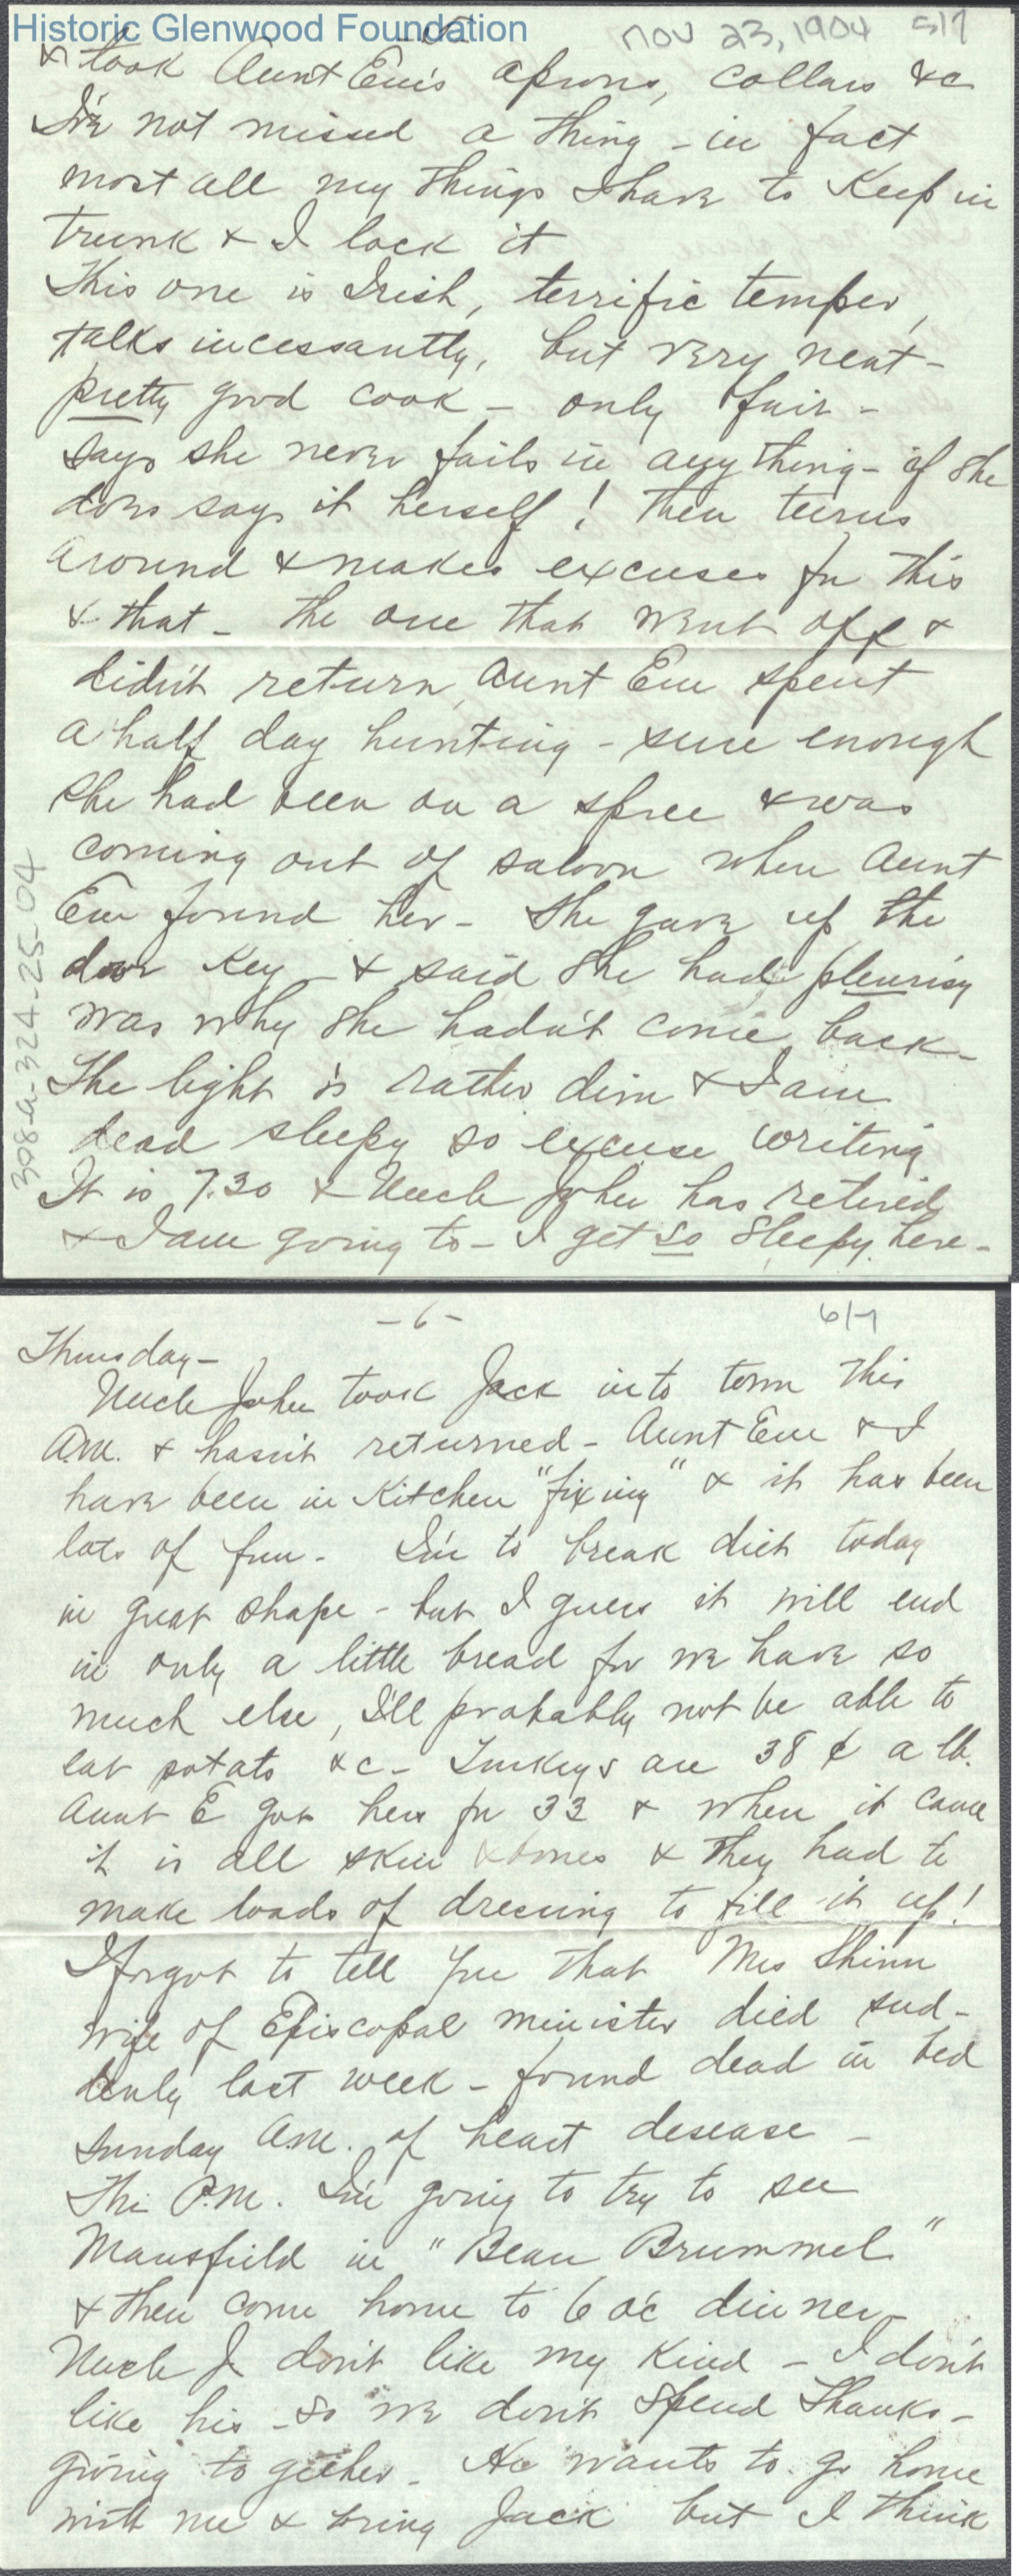 Historic Glenwood Foundation
-5-
Nov 23, 1904 5/7
& took Aunt Em's aprons, collars &c
I've not missed a thing - in fact
most all my things I have to keep in
trunk & I lock it
This one is Irish, terrific temper,
talks incessantly, but very neat -
pretty good cook - only fair -
says she never fails in anything - if she
does say it herself! Then turns
around & makes excuses for this
& that - The one that went off &
didn't return, Aunt Em spent
a half day hunting - sure enough
she had been on a spree & was
coming out of saloon when Aunt
Em found her - She gave up the
door key - & said she had pleurisy
was why she hadn't come back -
The light is rather dim & I am
dead sleepy so excuse writing
It is 7.30 & Uncle John has retired
& I am going to - I get so sleepy here -
398-a-324-25-04
-6-
6/7
Thursday -
Uncle John took Jack into town this
A.M. & hasn't returned - Aunt Em & I
have been in kitchen "fixing" & it has been
lots of fun - I'm to break diet today
in great shape - but I guess it will end
in only a little bread for we have so
much else, I'll probably not be able to
eat potato &c - Turkeys are 38 ¢ a lb.
Aunt E got hers for 33 & when it came
it is all skin & bones & they had to
make loads of dressing to fill it up!
I forgot to tell you that Mrs Shinn
wife of Episcopal minister died sud-
denly last week - found dead in bed
Sunday A.M. of heart desease -
This P.M. I'm going to try to see
Mansfield in "Beau Brummel"
& then come home to 6 oc dinner -
Uncle J don't like my kind - I don't
like his - so we don't spend Thanks-
giving to gether - He wants to go home
with me & bring Jack but I think